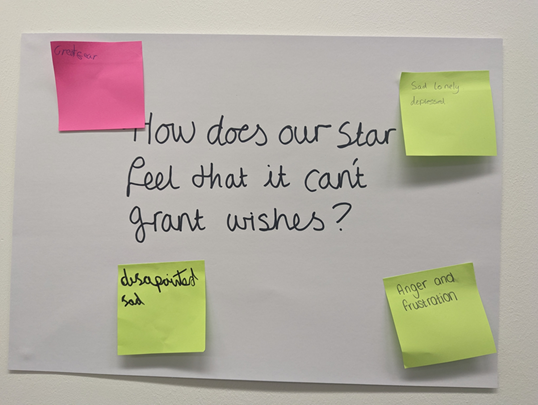 How does our star
feel that it can't
grant wishes?
Sad lonely
depressed
disapointed
sad
Anger and
frustration